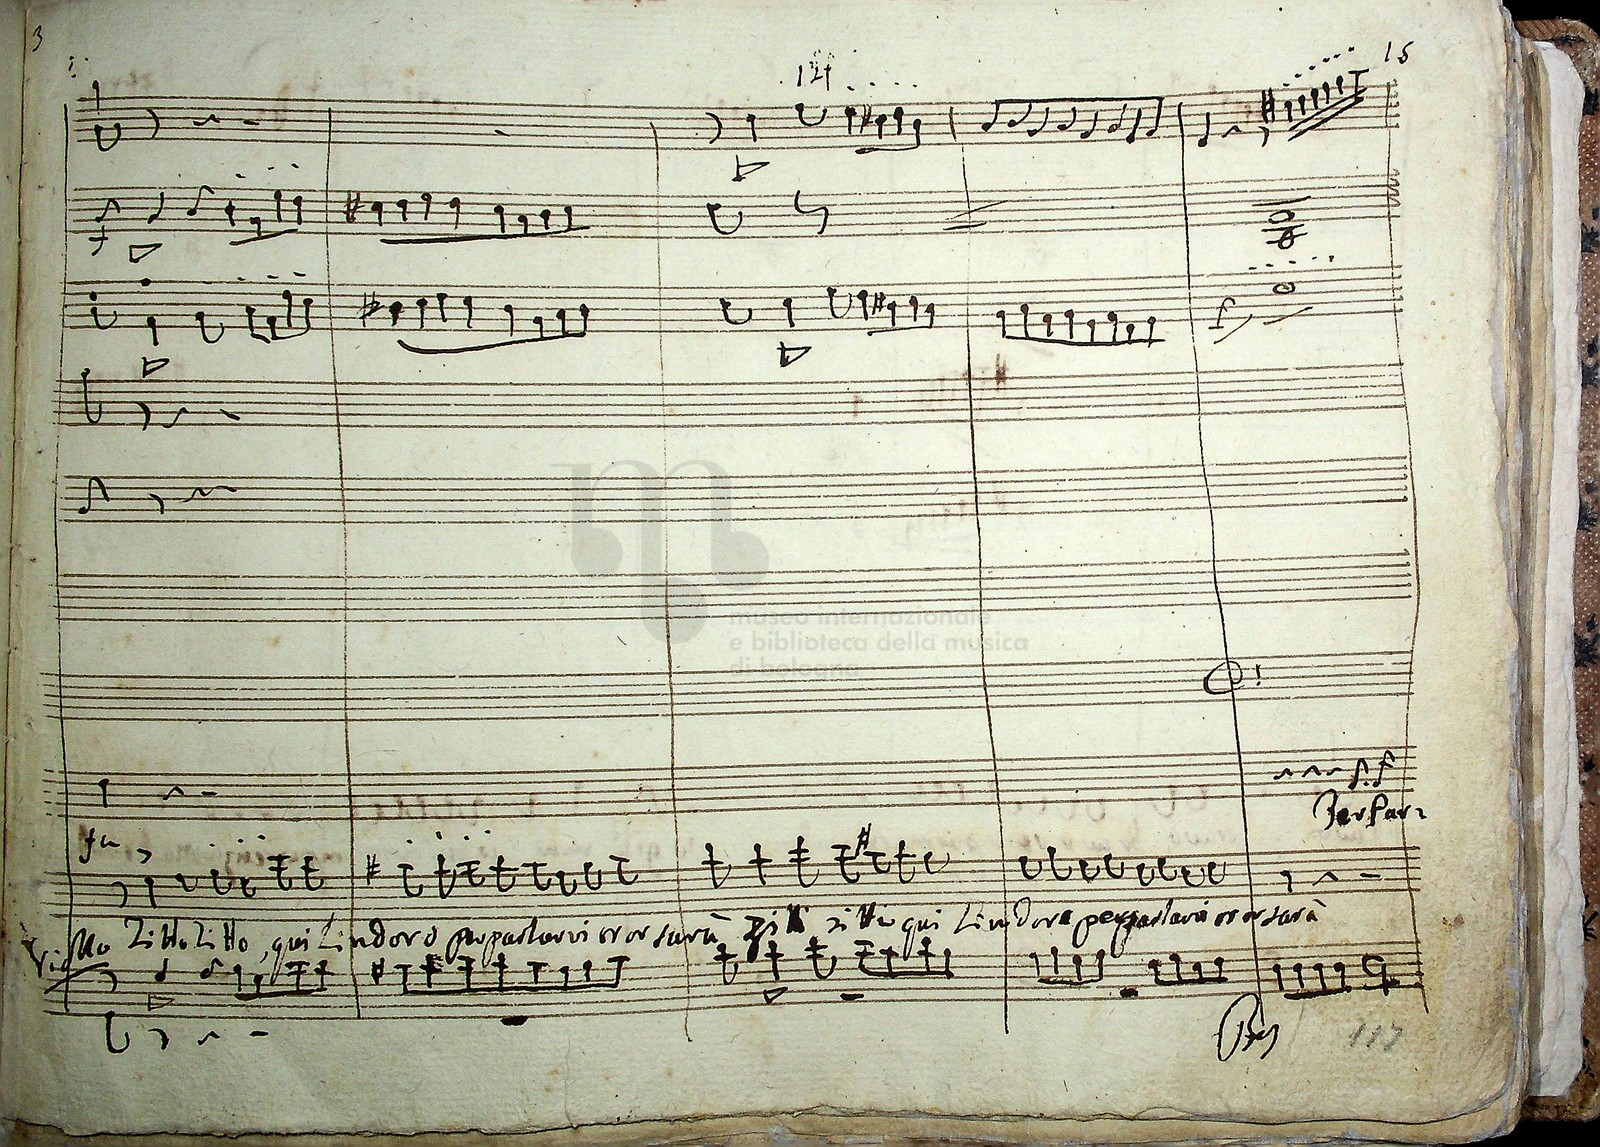 3
14
15
museo internazionale
e biblioteca della musica
di bologna
fu
Zitto Zitto, qui Lindoro per parlarvi or or sarà Zitti zitto qui Lindoro per parlarvi or or sarà
117